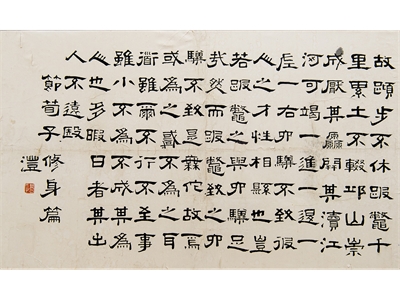 故蹞步不休跛鼈千
里累土不輟邱山崇
成厭其源開其瀆江
河可竭一進一退一
左一右六驥不致彼
人之才性相縣也豈
若跛鼈之與六驥足
哉然而跛鼈致之六
驥不致是無佗故焉
或為之或不為耳
道雖爾不行不至事
雖小不為不成其為
人也多暇日者其出
人不遠殹
節荀子修身篇
澧